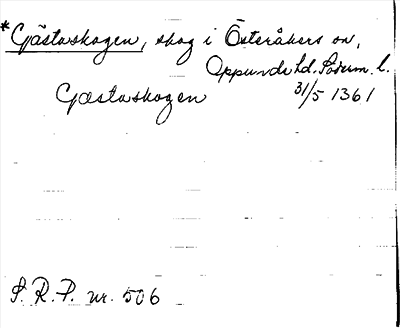 *Gästaskogen, skog i Österåkers sn,
Oppunda hd. Söderm. l.
Gæstaskogen 31/5 1361
S. R. P. nr. 506